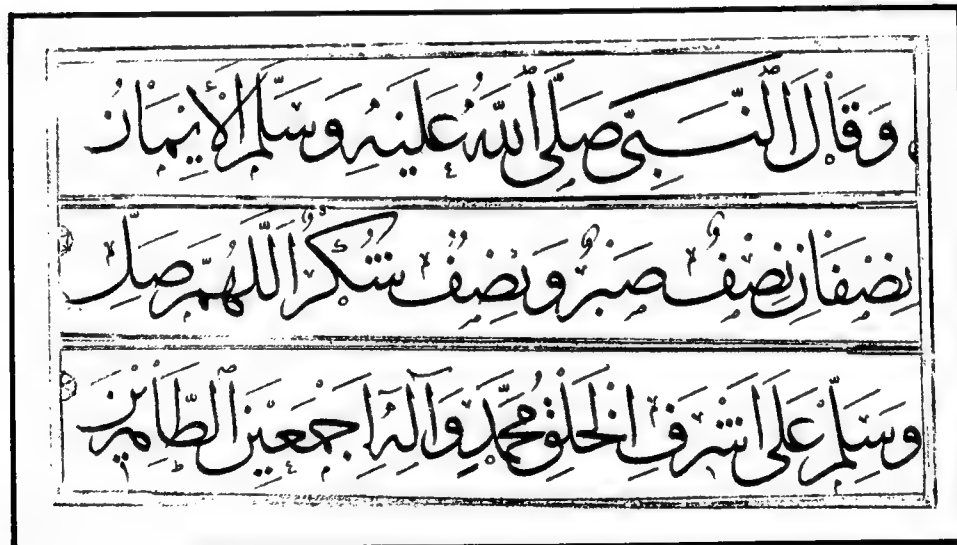 وَقَالَ ٱلنَّبِيُّ صَلَّى ٱللَّهُ عَلَيْهِ وَسَلَّمَ ٱلْإِيمَانُ
نِصْفَانِ نِصْفٌ صَبْرٌ وَنِصْفٌ شُكْرٌ اَللَّهُمَّ صَلِّ
وَسَلِّمْ عَلَى اَشْرَفِ الْخَلْقِ مُحَمَّدٍ وَآلِهِ اَجْمَعِيْنَ ٱلطَّاهِرِيْنَ